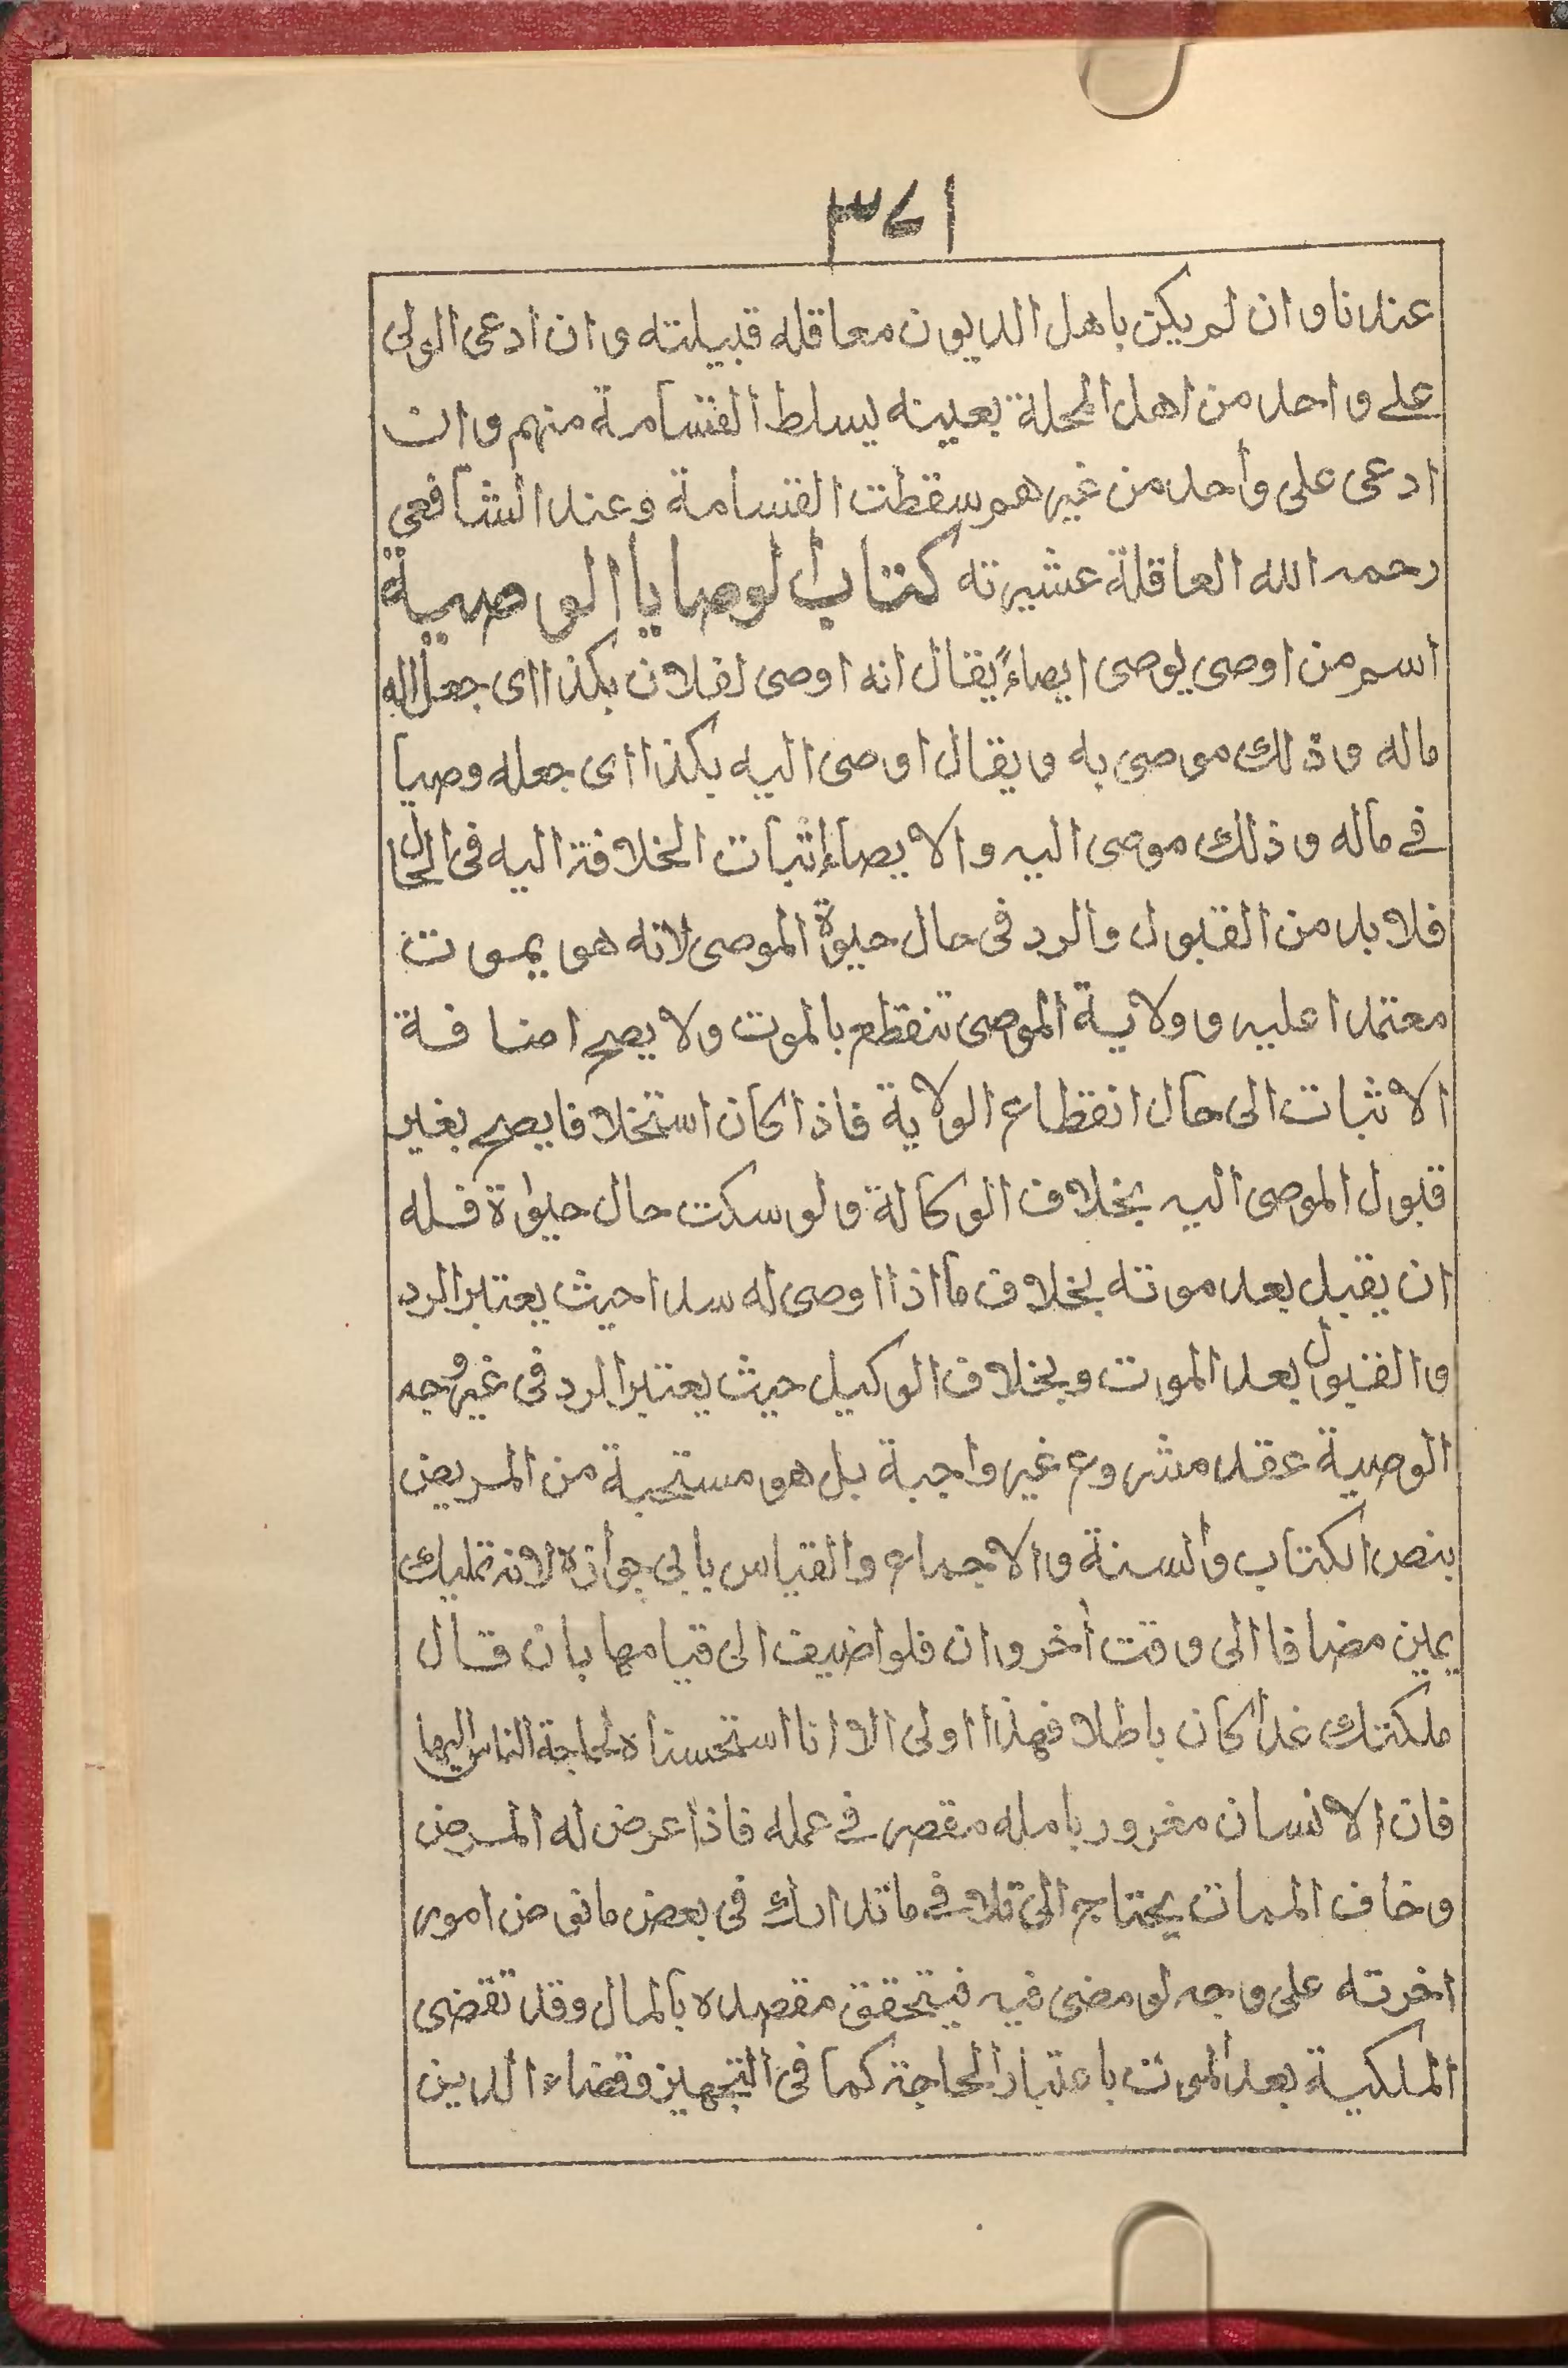 ٣٤١
عندنا وان لم يكن باهل الديون معاقله قبيلته وان ادعى الولى
على واحد من اهل المحلة بعينه يسلط القسامة منهم وان
ادعى على واحد من غيرهم سقطت القسامة وعند الشافعى
رحمه الله العاقلة عشيرته كتاب الوصايا الوصية
اسم من اوصى يوصى ايصاءً يقال انه اوصى لفلان بكذا اى جعل له
ماله وذلك موصى به ويقال اوصى اليه بكذا اى جعله وصيا
فى ماله وذلك موصى اليه والايصاء اثبات الخلافة اليه فى الحال
فلا بد من القبول والرد فى حال حيوة الموصى لانه هو يموت
معتمدا عليه وولاية الموصى تنقطع بالموت ولا يصح اضافة
الاثبات الى حال انقطاع الولاية فاذا كان استخلافا يصح بغير
قبول الموصى اليه بخلاف الوكالة ولو سكت حال حيوة فله
ان يقبل بعد موته بخلاف ما اذا اوصى له سدا حيث يعتبر الرد
والقبول بعد الموت وبخلاف الوكيل حيث يعتبر الرد فى غير وجه
الوصية عقد مشروع غير واجبة بل هو مستحبة من المريض
بنص الكتاب والسنة والاجماع والقياس يابى جوازه لانه تمليك
يمين مضافا الى وقت اخر وان فلو اضيف الى قيامها بان قال
ملكتك غدا كان باطلا فهذا اولى الا انا استحسناه لحاجة الناس اليها
فان الانسان مغرور بامله مقصر فى عمله فاذا عرض له المرض
وخاف الممات يحتاج الى تلافى ما تدارك فى بعض ما نوى من امور
اخرته على وجه لو مضى فيه فيتحقق مقصده بالمال وقد تقضى
الملكية بعد الموت باعتبار الحاجة كما فى التجهيز وقضاء الدين